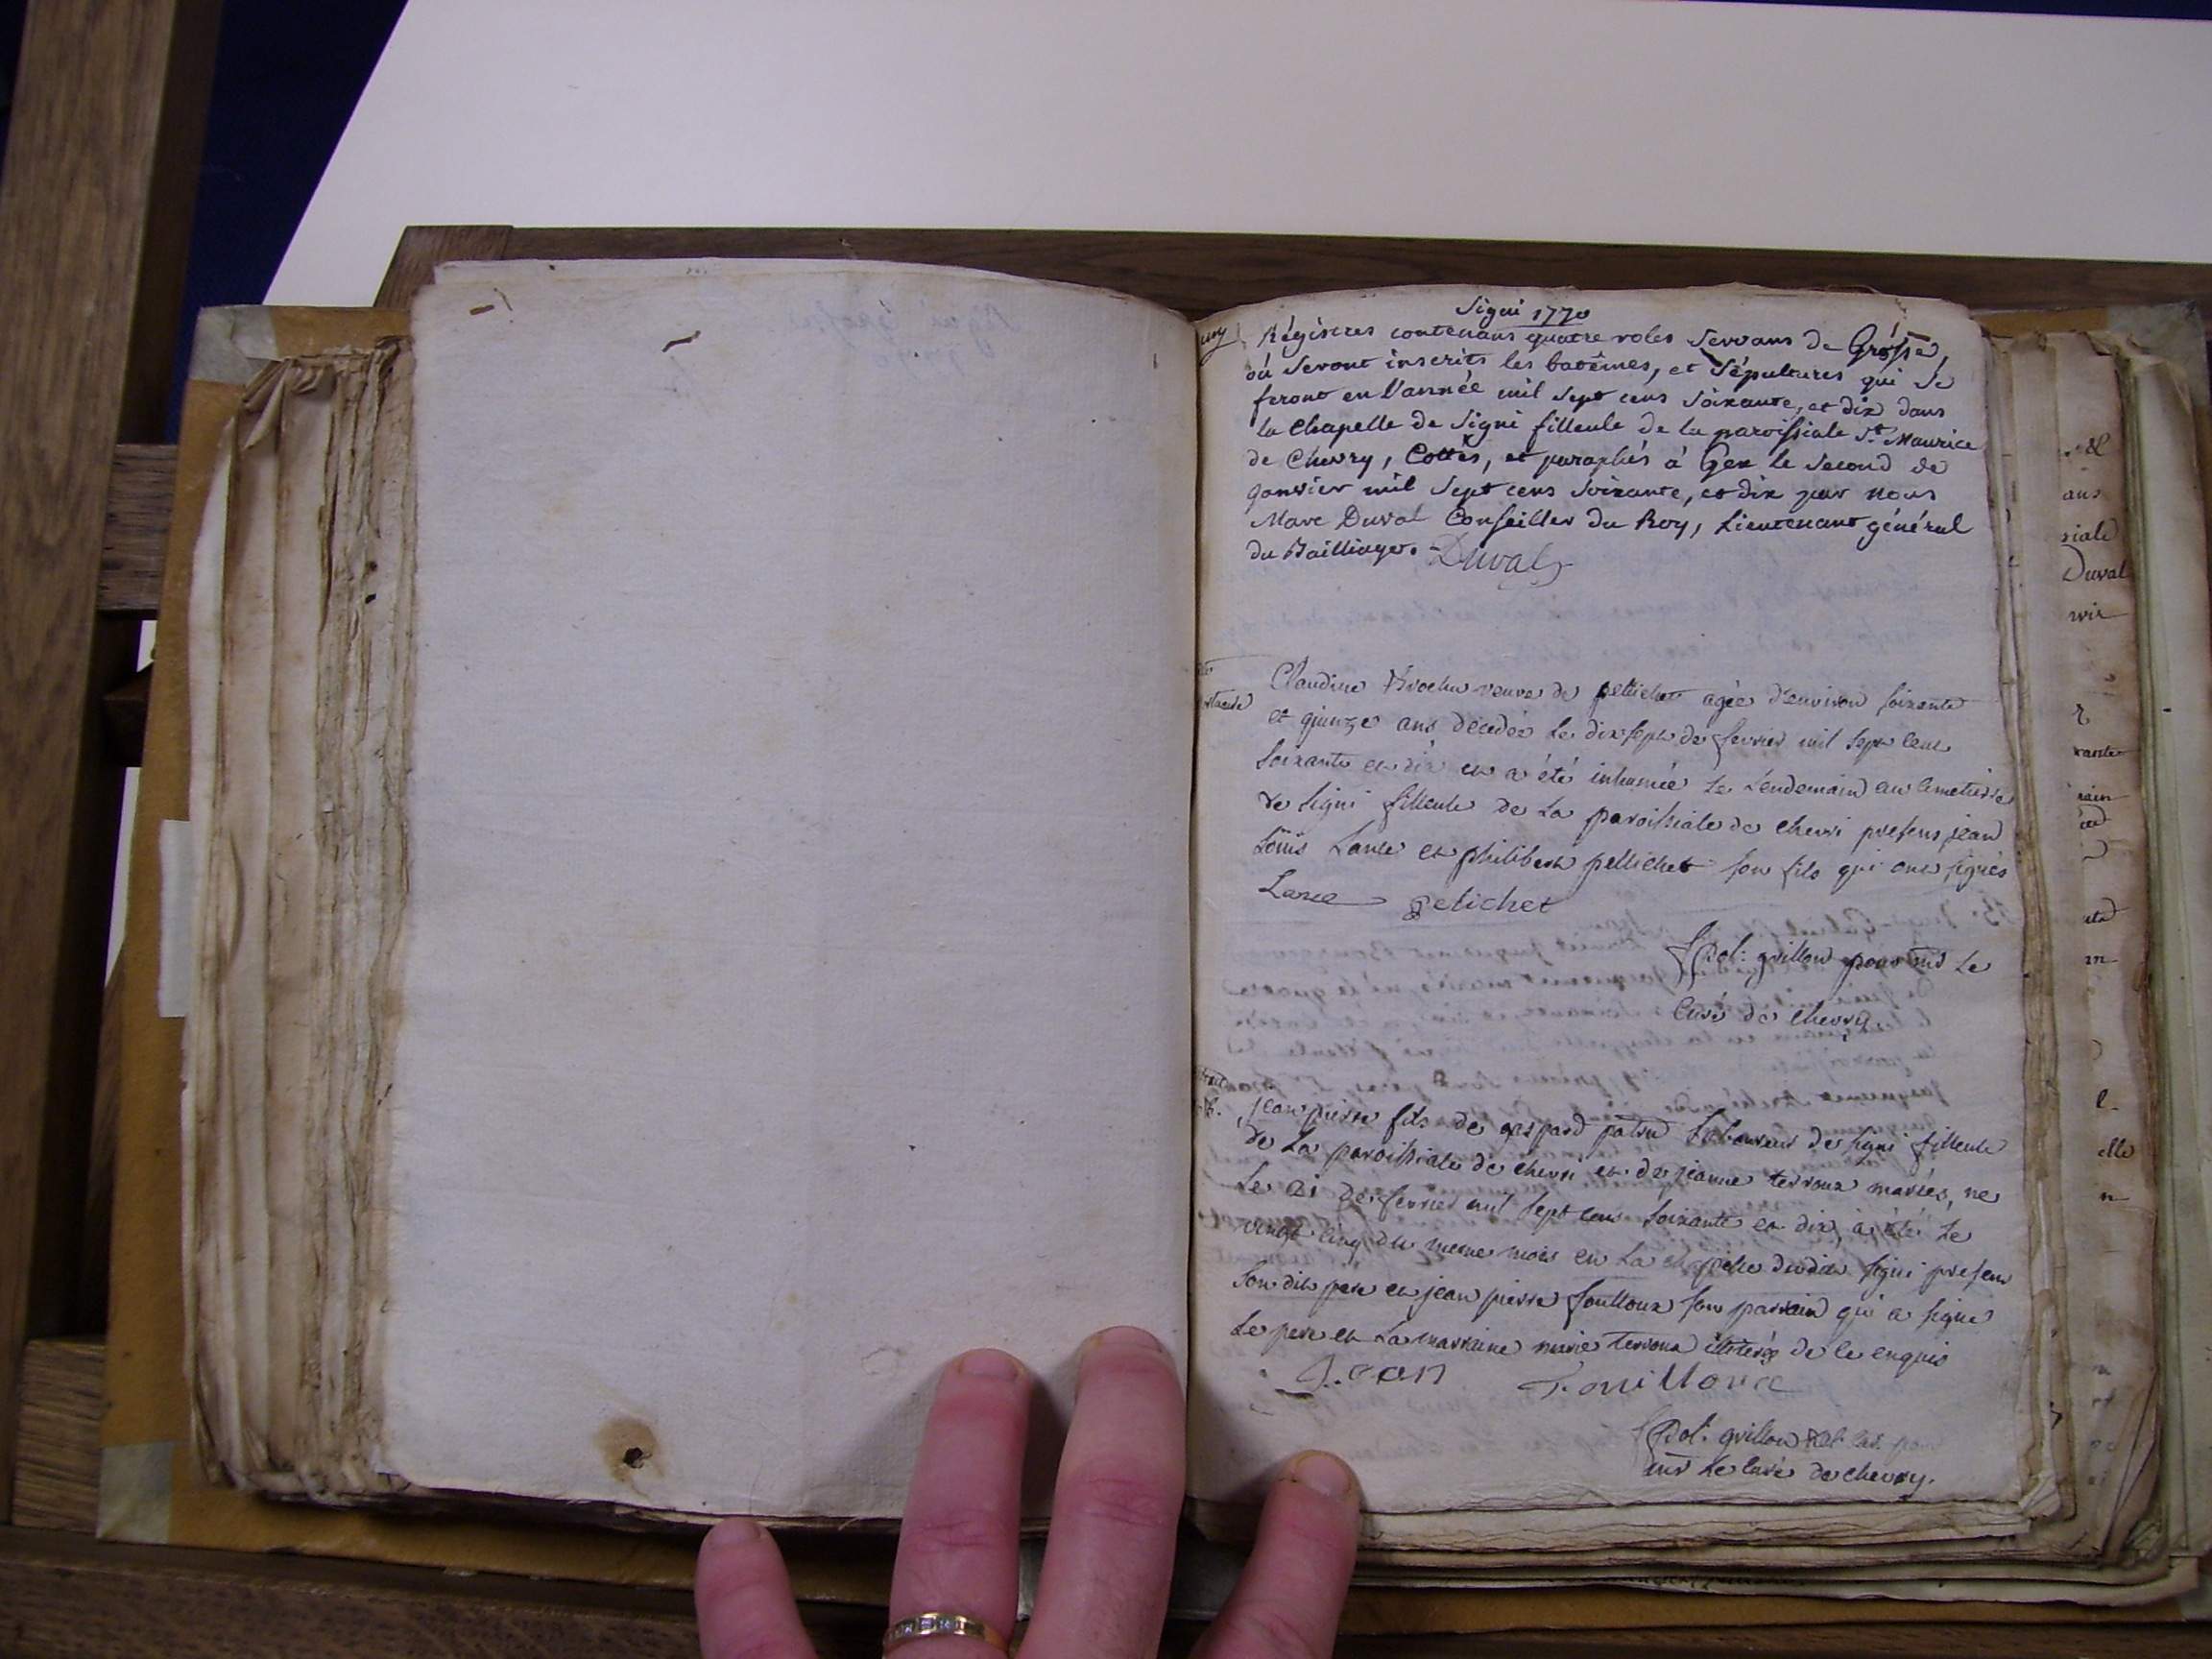 Signi 1770
Régistres contenans quatre roles Servans de Grosse,
où Seront inscrits les batêmes, et Sépultures qui Se
feront en l'année mil Sept cens Soixante, et dix dans
la Chapelle de Signi filleule de la paroissiale St. Maurice
de Chevry, Cottés, et paraphés à Gex le Second de
Janvier mil Sept cens Soixante, et dix par nous
Marc Duval Conseiller du Roy, Lieutenant général
du Bailliage. Duval
Claudine veuve de pellichet agée d'environ soixante
et quinze ans décédée le dix sept de fevrier mil sept cens
soixante et dix et a été inhumée le lendemain au cimetiere
de signi filleule de la paroissiale de chevri presens jean
Loüis Lance et philibert pellichet son fils qui ont signés
Lance pelichet
grillon pour mr le
Curé de chevry.
jean pierre fils de gaspard patru laboureur de signi filleule
de la paroissiale de chevri et de jeanne terroux mariés, ne
le 21 de fevrier mil sept cens soixante et dix, a été le
vingt cinq du meme mois en la chapelle dudit signi presens
son dit pere et jean pierre fouilloux son parrain qui a signé
le pere et la marraine marie terroux illiterés de ce enquis
J. ean Fouilloux
grillon pour
mr le curé de chevry.
Duval